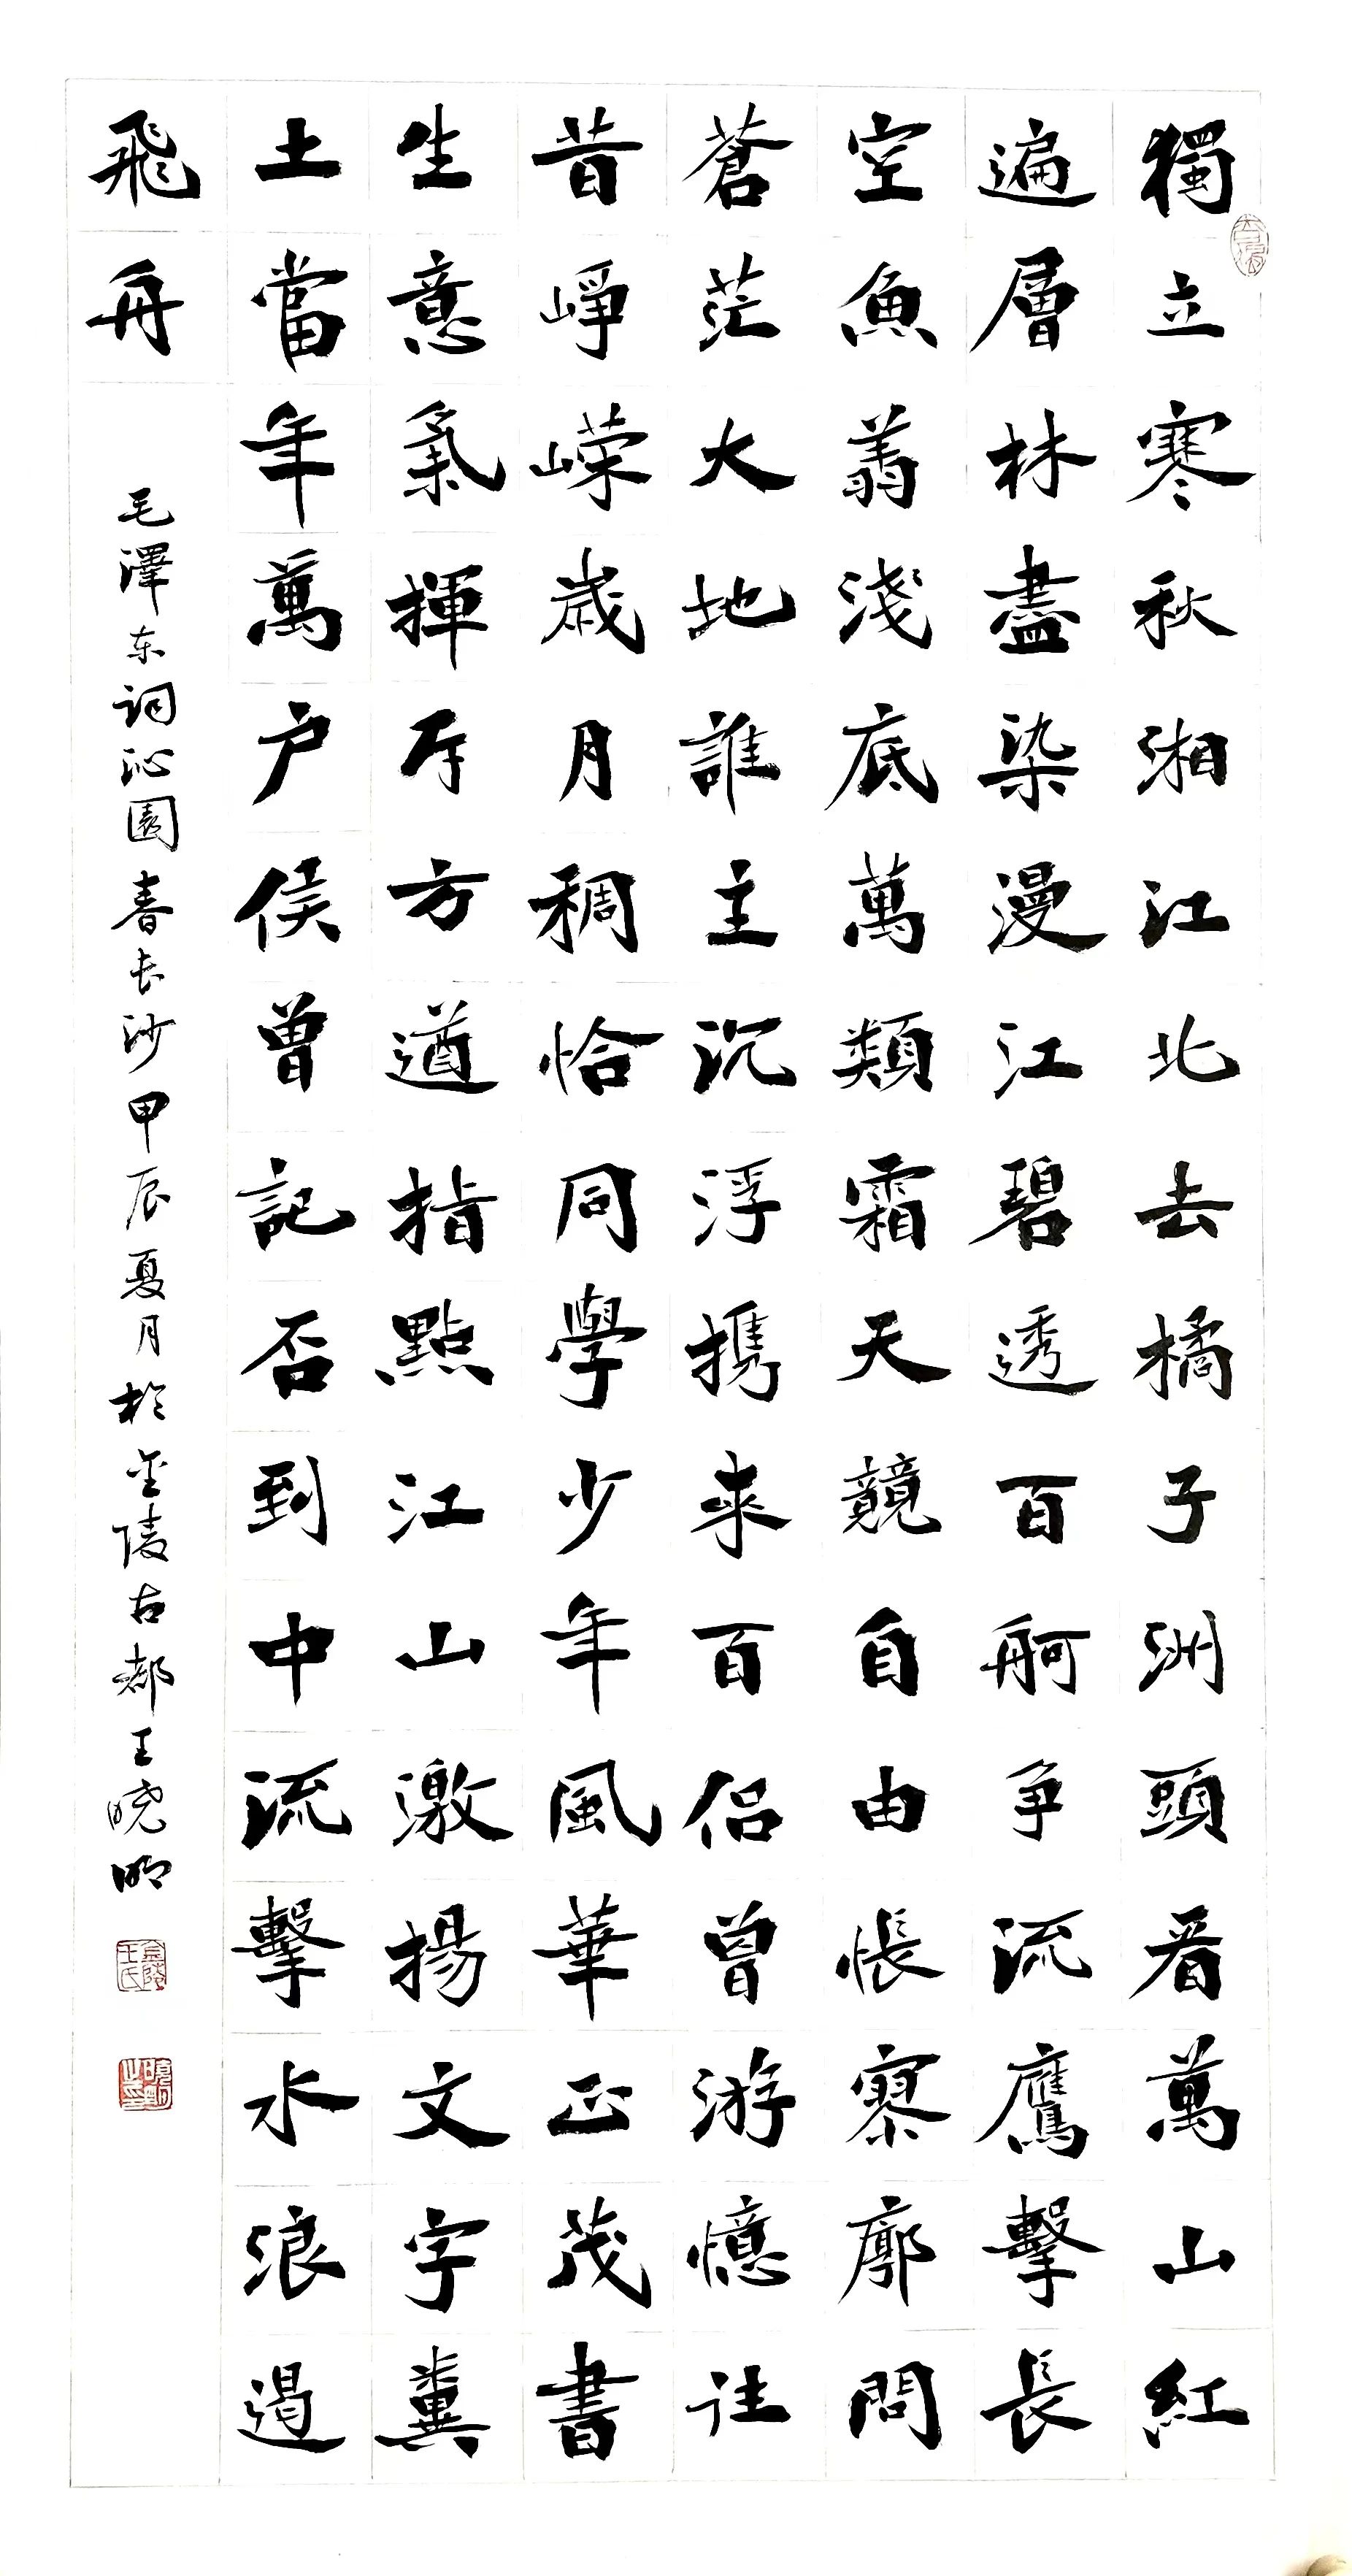 獨立寒秋湘江北去橘子洲頭看萬山紅
遍層林盡染漫江碧透百舸争流鷹擊長
空魚翔淺底萬類霜天競自由悵寥廓問
蒼茫大地誰主沉浮携来百侣曾游憶往
昔崢嵘歲月稠恰同學少年風華正茂書
生意氣揮斥方遒指點江山激揚文字糞
土當年萬户侯曾記否到中流擊水浪遏
飛舟
毛澤东詞沁園春长沙甲辰夏月於金陵古都王曉明
金陵王氏